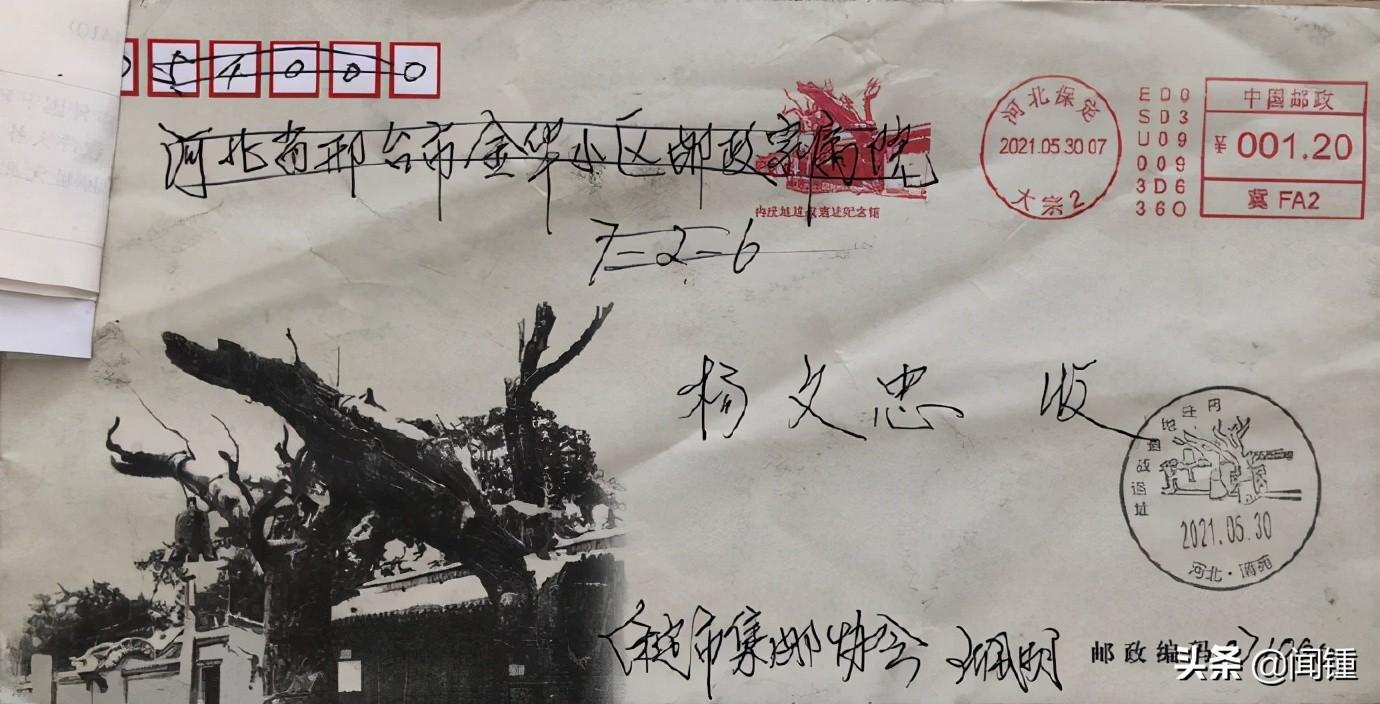 54000
河北省邢台市金华小区邮政家属院
7=2=6
冉庄地道战遗址纪念馆
河北保定
2021.05.30 07
大宗2
ED0
SD3
U09
009
3D6
360
中国邮政
¥001.20
冀 FA2
杨文忠 收
冉庄地道战遗址
2021.05.30
河北·清苑
保定市集邮协会
邮政编码
头条 @闻锺